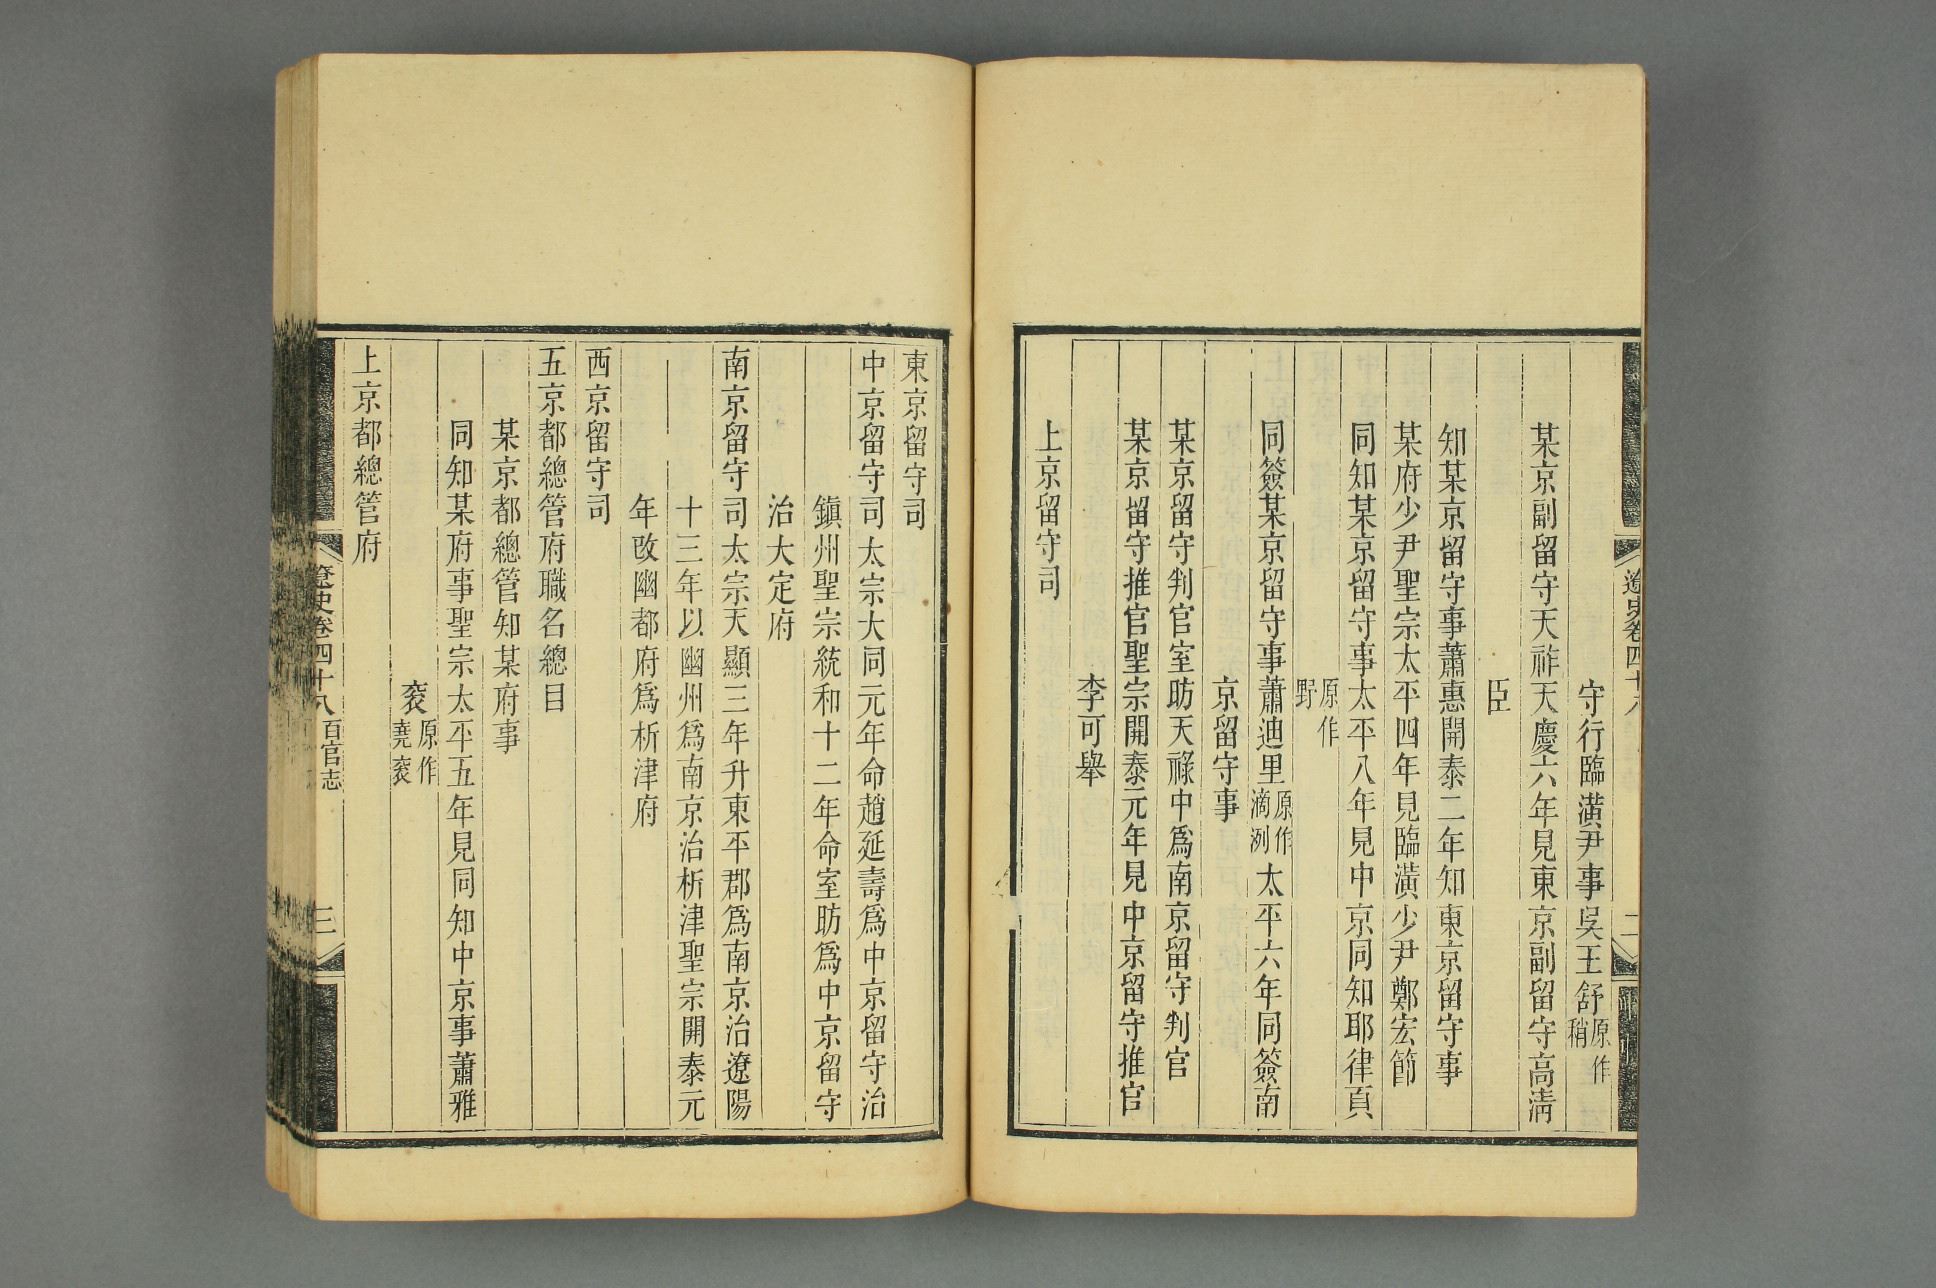 遼史卷四十八
二
守行臨潢尹事吳王舒原作稍
某京副留守天祚天慶六年見東京副留守高清
臣
知某京留守事蕭惠開泰二年知東京留守事
某府少尹聖宗太平四年見臨潢少尹鄭宏節
同知某京留守事太平八年見中京同知耶律頁
野原作
同簽某京留守事蕭迪里原作滴冽太平六年同簽南
京留守事
某京留守判官室昉天祿中爲南京留守判官
某京留守推官聖宗開泰元年見中京留守推官
李可舉
上京留守司
東京留守司
中京留守司太宗大同元年命趙延壽爲中京留守治
鎮州聖宗統和十二年命室昉爲中京留守
治大定府
南京留守司太宗天顯三年升東平郡爲南京治遼陽
十三年以幽州爲南京治析津聖宗開泰元
年改幽都府爲析津府
西京留守司
五京都總管府職名總目
某京都總管知某府事
同知某府事聖宗太平五年見同知中京事蕭雅
袞原作堯袞
上京都總管府
遼史卷四十八百官志
三